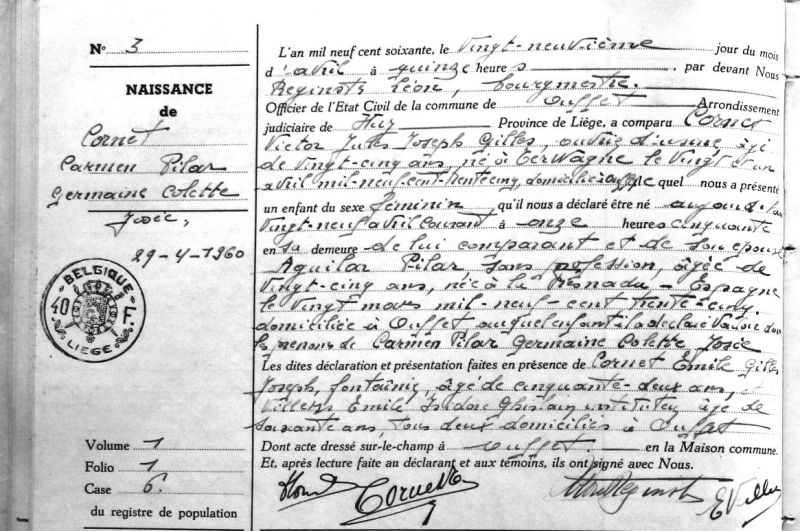 N° 3
NAISSANCE
de
Cornet
Carmen Pilar
Germaine Colette
Josée,
29-4-1960
BELGIQUE
40 F.
LIEGE
Volume 1
Folio 1
Case 6.
du registre de population
L'an mil neuf cent soixante, le Vingt-neuvième jour du mois
d'avril à quinze heures, par devant Nous
Reginster Léon, bourgmestre.
Officier de l'Etat Civil de la commune de Ouffet Arrondissement
judiciaire de Huy Province de Liège, a comparu Cornet
Victor Jules Joseph Gilles, ouvrier d'usine, âgé
de vingt-cinq ans, né à Terwagne le vingt et un
avril mil-neuf cent-trente cinq, domicilié à Ouffet le quel nous a présenté
un enfant du sexe féminin qu'il nous a déclaré être né aujourd'hui
vingt-neuf avril courant à onze heures cinquante
en sa demeure de lui comparant et de son épouse
Aguilar Pilar sans profession, âgée de
vingt-cinq ans, née à la - Espagne
le vingt mars mil-neuf-cent trente-cinq.
domiciliée à Ouffet auquel enfant il a déclaré vouloir donner
les prénoms de Carmen Pilar Germaine Colette Josée
Les dites déclaration et présentation faites en présence de Cornet Emile Gilles
Joseph, âgé de cinquante-deux ans, et
Emile Isidore Ghislain instituteur âgé de
soixante ans, tous deux domiciliés à Ouffet
Dont acte dressé sur-le-champ à Ouffet. en la Maison commune.
Et, après lecture faite au déclarant et aux témoins, ils ont signé avec Nous.
Cornet